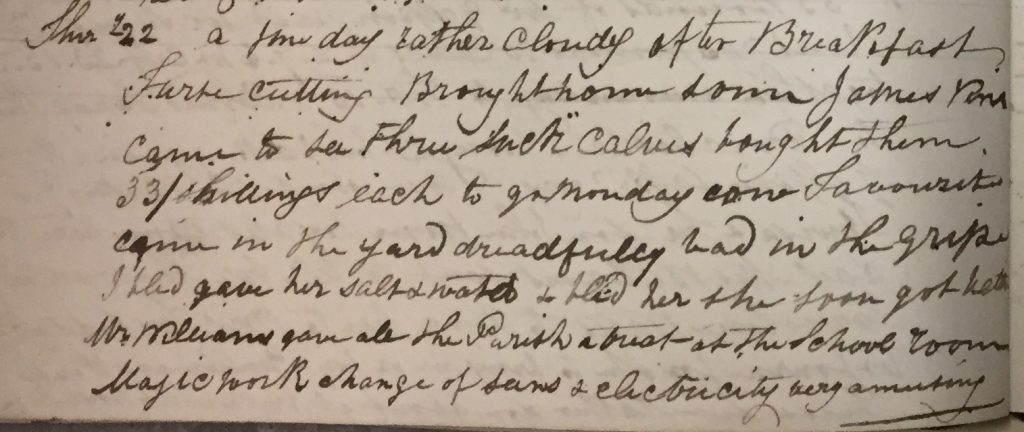 Thur 22 a fine day rather cloudy after Breakfast
Furse cutting Brought home some James
came to see three "suck" calves bought them
33/ shillings each to go monday cow Favourite
came in the yard dreadfulley bad in the gripe
I bled gave her salt & water & bled her she soon got
Mr. Williams gave all the Parish a treat at the School room
Magic work change of &  electricity very amusing